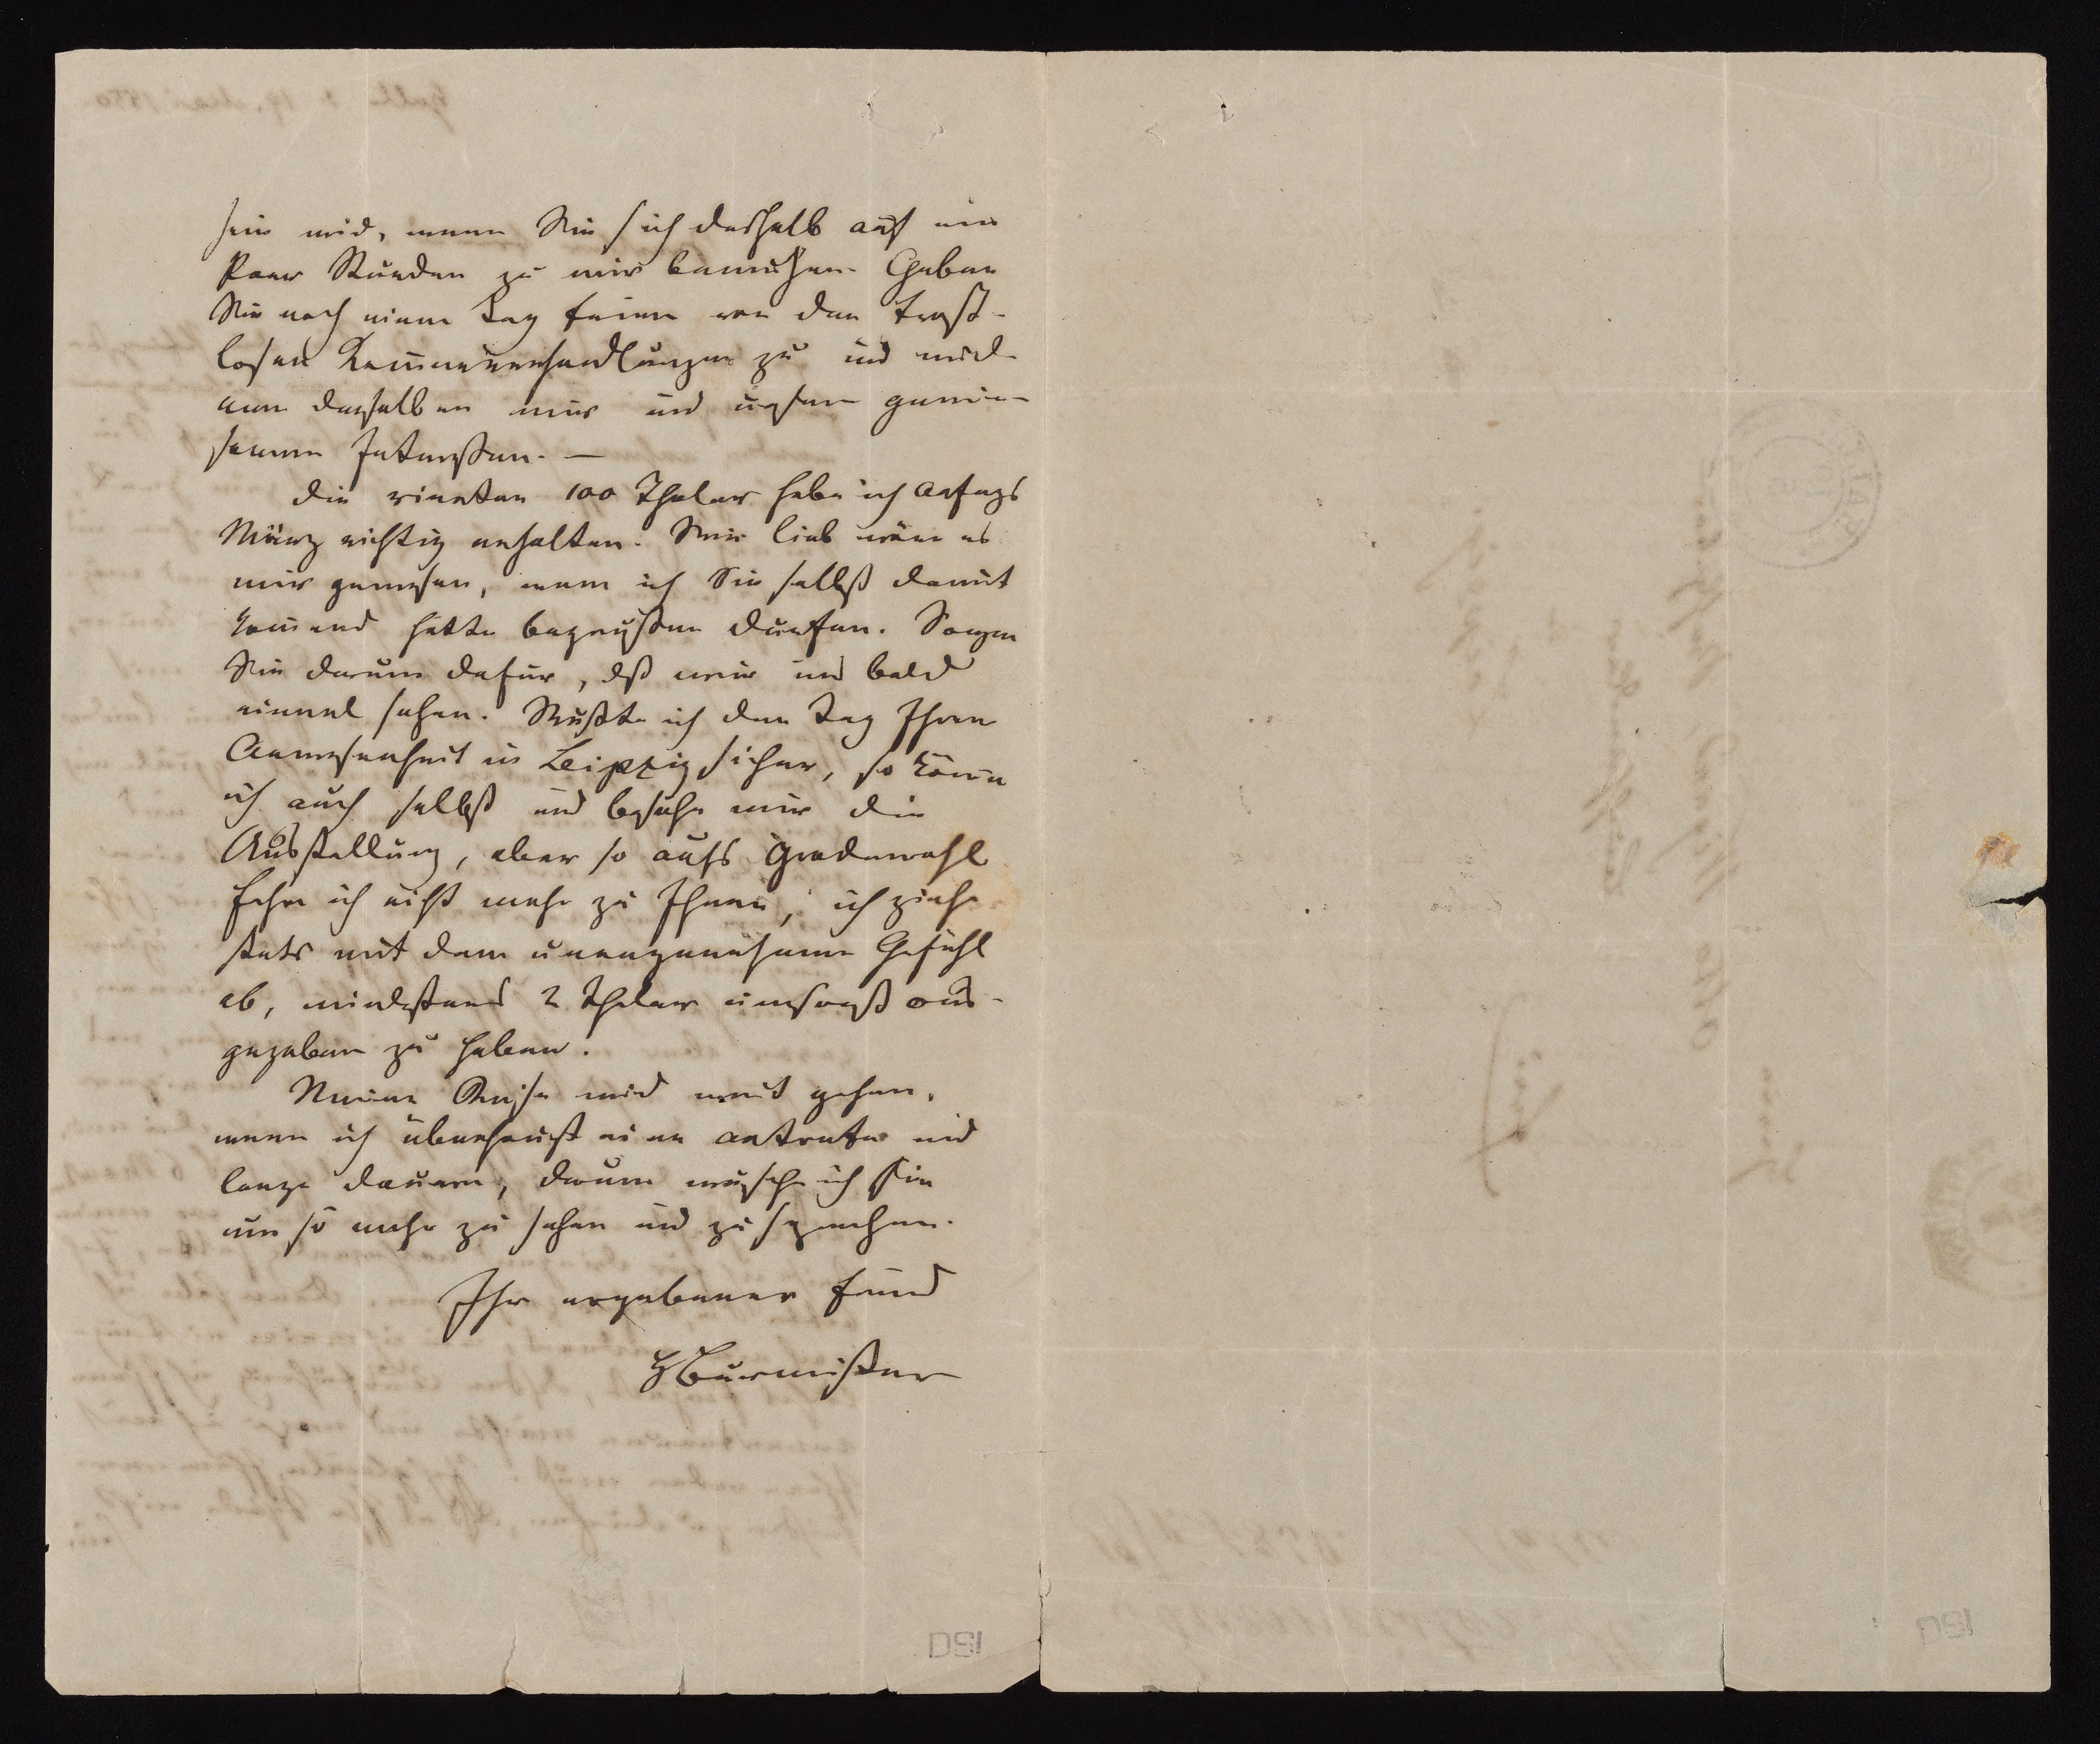 sein wird, wenn Sie sich deshalb auf ein
Paar Stunden zu mir bemühen. Geben
Sie noch einen Tag Ferien von den trost-
losen Kammerverhandlungen zu und wid-
men denselben mir und unsern gemein-
samen Interessen. —
Die vierten 100 Thaler habe ich Anfangs
März richtig erhalten. Mir lieb wäre es
mir gewesen, wenn ich Sie selbst damit
kommend hätte begrüßen dürfen. Sorgen
Sie darum dafür, dß wir uns bald
einmal sehen. Wüßte ich den Tag Ihrer
Anwesenheit in Leipzig sicher, so käme
ich auch selbst und besähe mir die
Ausstellung, aber so aufs Gradewohl
fahre ich nicht mehr zu Ihnen, ich ziehe
stets mit dem unangenehmen Gefühl
ab, mindestens 2 Thaler umsonst aus-
gegeben zu haben.
Meine Reise wird weit gehen,
wenn ich überhaupt eine antrete und
lange dauern, darum wünsche ich Sie
um so mehr zu sehen und zu sprechen.
Ihr ergebener Freund
HBurmeister